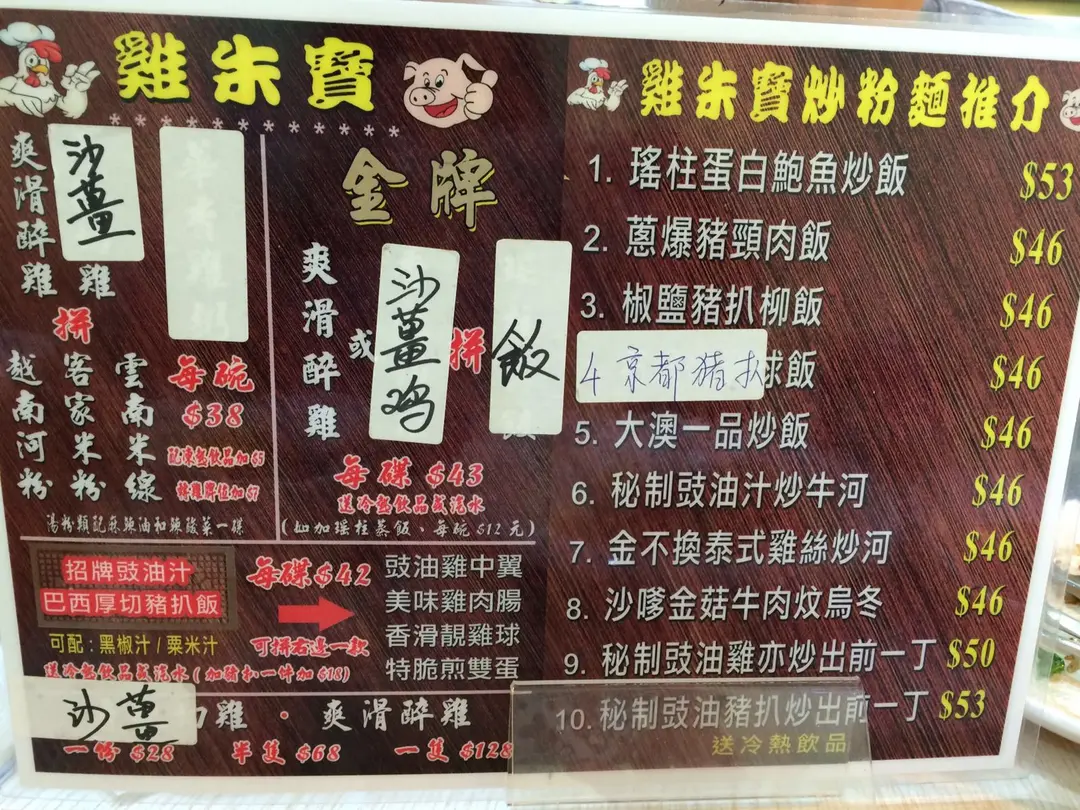 雞朱寶
爽滑醉雞
沙薑雞
拼
越南河粉
客家米粉
雲南米線
每碗
$38
配凍熱飲品加$5
轉雞髀位加$7
湯粉類配麻辣油和辣酸菜一碟
金牌
爽滑醉雞
或
沙薑鸡
拼
飯
每碟 $43
送冷熱飲品或汽水
(如加瑤柱蒸飯、每碗$12元)
招牌豉油汁
巴西厚切豬扒飯
可配:黑椒汁/粟米汁
每碟$42
可拼右邊一款
豉油雞中翼
美味雞肉腸
香滑靚雞球
特脆煎雙蛋
送冷熱飲品或汽水(加豬扒一件加$18)
沙薑 雞 · 爽滑醉雞
一份 $28 半隻 $68 一隻 $128
雞朱寶炒粉麵推介
1. 瑤柱蛋白鮑魚炒飯 $53
2. 蔥爆豬頸肉飯 $46
3. 椒鹽豬扒柳飯 $46
4 京都猪扒球飯 $46
5. 大澳一品炒飯 $46
6. 秘制豉油汁炒牛河 $46
7. 金不換泰式雞絲炒河 $46
8. 沙嗲金菇牛肉炆烏冬 $46
9. 秘制豉油雞亦炒出前一丁 $50
10. 秘制豉油豬扒炒出前一丁 $53
送冷熱飲品